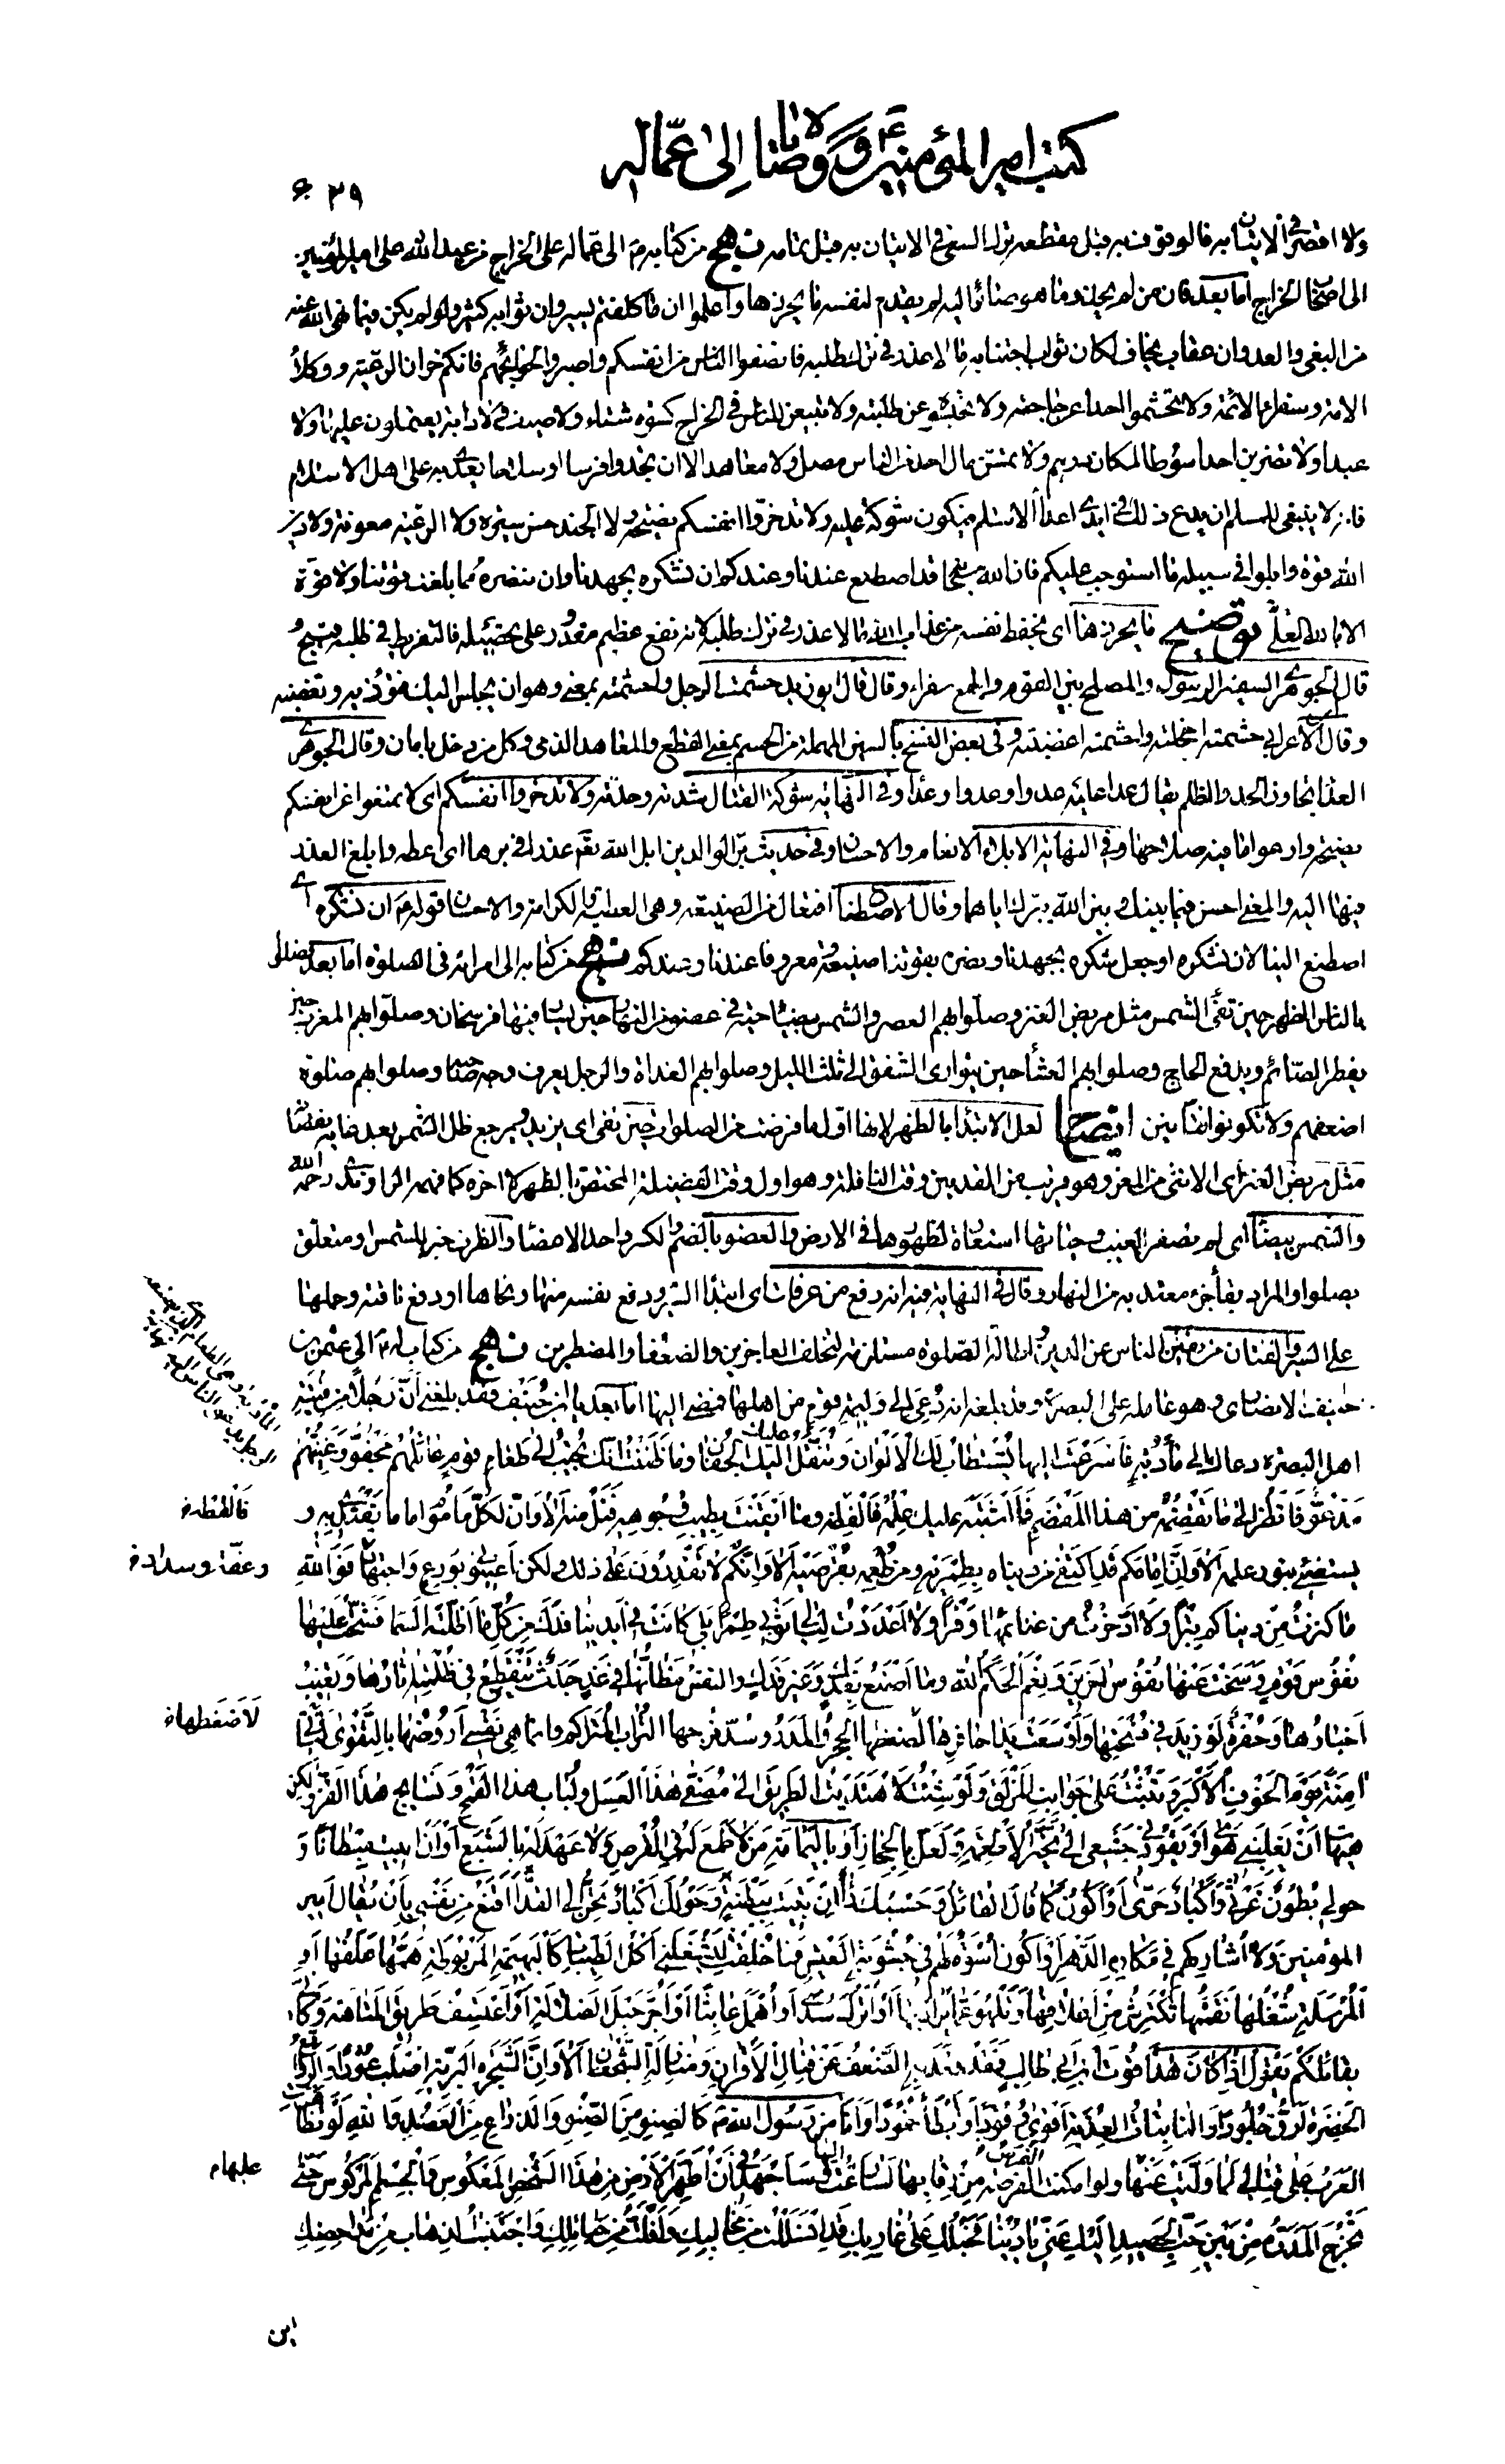 كتب امير المؤمنين ع ووصاياه الى عماله
٦٣٩
من كتابه م الى عماله على الخراج من عبد الله على امير المؤمنين
الى اصحاب الخراج اما بعد فان من لم يحذر ما هو صائر اليه لم يقدم لنفسه ما يحرزها واعلموا ان ما كلفتم يسير وان ثوابه كثير ولو لم يكن فيما نهى الله عنه
من البغى والعدوان عقاب يخاف لكان ثواب اجتنابه ما لا عذر فى ترك طلبه فانصفوا الناس من انفسكم واصبروا لحوائجهم فانكم خزان الرعية ووكلاء
الامة وسفراء الائمة ولا تحشموا احدا عن حاجته ولا تحبسوه عن طلبته ولا تبيعن للناس فى الخراج كسوة شتاء ولا صيف ولا دابة يعتملون عليها ولا
عبدا ولا تضربن احدا سوطا لمكان درهم ولا تمسن مال احد من الناس مصل ولا معاهد الا ان تجدوا فرسا او سلاحا يعدى به على اهل الاسلام
فانه لا ينبغى للمسلم ان يدع ذلك فى ايدى اعداء الاسلام فيكون شوكة عليه ولا تدخروا انفسكم نصيحة ولا الجند حسن سيرة ولا الرعية معونة ولا دين
الله قوة وابلوا فى سبيله ما استوجب عليكم فان الله سبحانه قد اصطنع عندنا وعندكم ان نشكره بجهدنا وان ننصره مما بلغت قوتنا ولا قوة
الا بالله العلى توضيح ما يحرزها اى يحفظ نفسه من عذاب الله ما لا عذر فى ترك طلبه لانه نفع عظيم مقدور على تحصيله فالتفريط فى طلبه قبيح
قال الجوهرى السفير الرسول والمصلح بين القوم والجمع سفراء وقال قال ابو زيد حشمت الرجل واحشمته بمعنى وهو ان يجلس اليك فتؤذيه وتغضبه
وقال ابن الاعرابى حشمته اخجلته واحشمته اغضبته وفى بعض النسخ بالسين المهملة من الحسم بمعنى القطع والمعاهد الذمى وكل من دخل بامان وقال الجوهرى
العداء تجاوز الحد والظلم يقال عدا عليه عدوا وعدوا وعداء وفى النهاية شوكة القتال شدته وحدته ولا تدخروا انفسكم اى لا تمنعوا عن انفسكم
فيها اليه والمعنى احسن فيما بينك وبين الله ببرك اياهما وقال الاصطناع افتعال من الصنيعة وهى العطية والكرامة والاحسان قوله م ان نشكره اى
اصطنع الينا لان نشكره او جعل شكره بجهدنا ونصره بقوتنا صنيعة ومعروفا عندنا وعندكم نهج من كتابه الى امرائه فى الصلوة اما بعد فصلوا
بالناس الظهر حين تفئ الشمس مثل مربض العنز وصلوا بهم العصر والشمس بيضاء حية فى عضو من النهار حين يسار فيها فرسخان وصلوا بهم المغرب حين
يفطر الصائم ويدفع الحاج وصلوا بهم العشاء حين يتوارى الشفق الى ثلث الليل وصلوا بهم الغداة والرجل يعرف وجه صاحبه وصلوا بهم صلوة
اضعفهم ولا تكونوا فتانين ايضاح لعل الابتداء بالظهر لانها اول ما فرضت من الصلوات حين تفئ اى يزيد ويرجع ظل الشمس بعد غاية نقصانه
مثل مربض العنز اى الانثى من المعز وهو قريب من القدمين وقت النافلة وهو اول وقت الفضيلة المختص بالظهر لا اخره كما فهمه الراوندى رحمه الله
يصلوا والمراد بقاء جزء معتد به من النهار وقال فى النهاية فيه انه دفع من عرفات اى ابتدا السير ودفع نفسه منها ونحاها او دفع ناقته وحملها
على السير والفتان من يفتن الناس عن الدين واطالة الصلوة مستلزمة لتخلف العاجزين والضعفاء والمضطرين نهج من كتاب له م الى عثمن بن
حنيف الانصارى وهو عامله على البصرة وقد بلغه انه دعى الى وليمة قوم من اهلها فمضى اليها اما بعد يا ابن حنيف فقد بلغنى ان رجلا من فتية
اهل البصرة دعاك الى مأدبة فاسرعت اليها يستطاب لك الالوان وتنقل اليك الجفان وما ظننت انك تجيب الى طعام قوم عائلهم مجفو وغنيهم
مدعو فانظر الى ما تقضمه من هذا المقضم فما اشتبه عليك علمه فالفظه وما ايقنت بطيب وجوهه فنل منه الا وان لكل مأموم اماما يقتدى به و
يستضئ بنور علمه الا وان امامكم قد اكتفى من دنياه بطمريه ومن طعمه بقرصيه الا وانكم لا تقدرون على ذلك ولكن اعينونى بورع واجتهاد فوالله
ما كنزت من دنياكم تبرا ولا ادخرت من غنائمها وفرا ولا اعددت لبالى ثوبى طمرا بلى كانت فى ايدينا فدك من كل ما اظلته السماء فشحت عليها
نفوس قوم وسخت عنها نفوس اخرين ونعم الحكم الله وما اصنع بفدك وغير فدك والنفس مظانها فى غد جدث تنقطع فى ظلمته اثارها وتغيب
اخبارها وحفرة لو زيد فى فسحتها واوسعت يدا حافرها لضغطها الحجر والمدر وسد فرجها التراب المتراكم وانما هى نفسى اروضها بالتقوى لتأتى
امنة يوم الخوف الاكبر وتثبت على جوانب المزلق ولو شئت لاهتديت الطريق الى مصفى هذا العسل ولباب هذا القمح ونسايج هذا القز ولكن
هيهات ان يغلبنى هواى او يقودنى جشعى الى تخير الاطعمة ولعل بالحجاز او باليمامة من لا طمع له فى القرص ولا عهد له بالشبع او ان ابيت مبطانا و
حولى بطون غرثى واكباد حرى او اكون كما قال القائل وحسبك داء ان تبيت ببطنة وحولك اكباد تحن الى القد أاقنع من نفسى بان يقال امير
المؤمنين ولا اشاركهم فى مكاره الدهر او اكون اسوة لهم فى جشوبة العيش فما خلقت ليشغلنى اكل الطيبات كالبهيمة المربوطة همها علفها او
المرسلة شغلها تقممها تكترش من اعلافها وتلهو عما يراد بها او اترك سدى او اهمل عابثا او اجر حبل الضلالة او اعتسف طريق المتاهة وكأنى
بقائلكم يقول اذا كان هذا قوت ابن ابى طالب فقد قعد به الضعف عن قتال الاقران ومنازلة الشجعان الا وان الشجرة البرية اصلب عودا والروائع
الخضرة ارق جلودا والنابتات العذية اقوى وقودا وابطأ خمودا وانا من رسول الله م كالصنو من الصنو والذراع من العضد والله لو تظاهرت
العرب على قتالى لما وليت عنها ولو امكنت الفرصة من رقابها لسارعت اليها وساجهد فى ان اطهر الارض من هذا الشخص المعكوس والجسم المركوس حتى
تخرج المدرة من بين حب الحصيد اليك عنى يا دنيا فحبلك على غاربك قد انسللت من مخالبك وافلت من حبائلك واجتنبت الذهاب فى مداحضك
فالفظه
وعفة وسداد
لاضغطها
عليها
اين